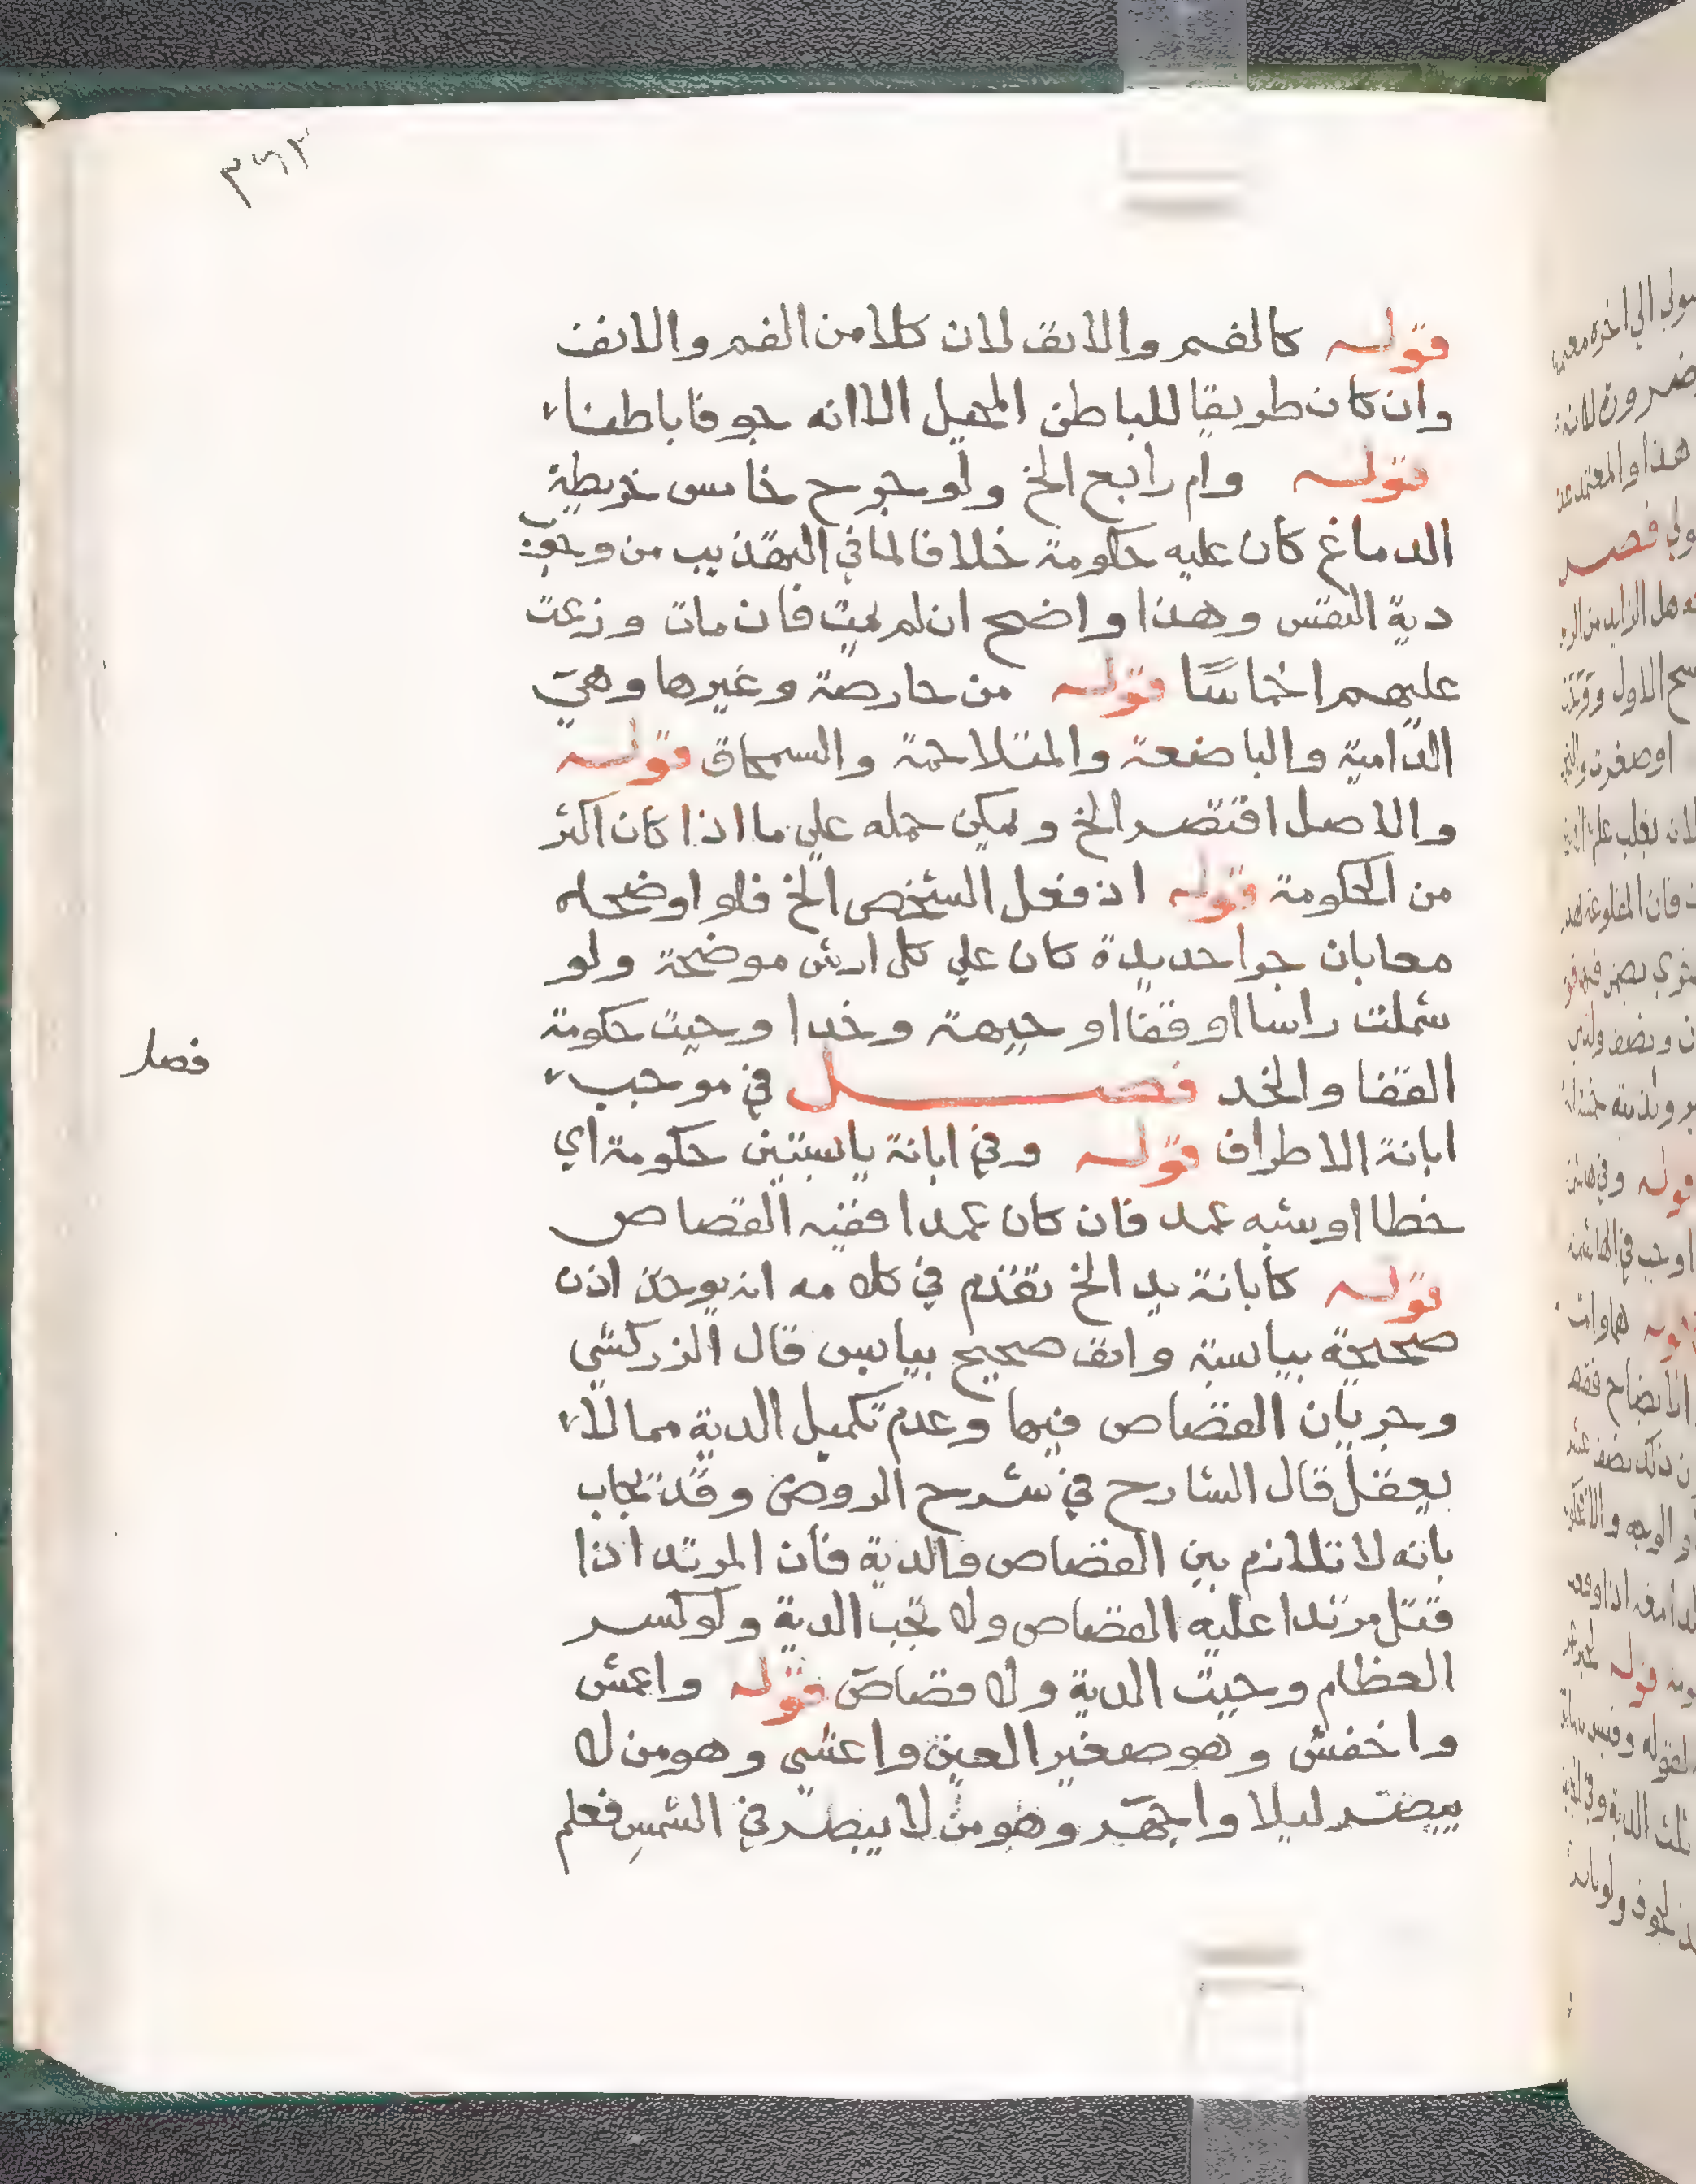 ٣٦٢
قوله كالفم والانف لان كلا من الفم والانف
وان كان طريقا للباطن المحيل الا انه جوفا باطنا
قوله وام رابع الخ ولو جرح خامس خريطة
الدماغ كان عليه حكومة خلافا لما في التهذيب من وجوب
دية النفس وهذا واضح ان لم يمت فان مات وزعت
عليهم اخماسا قوله من حارصة وغيرها وهي
الدامية والباضعة والمتلاحمة والسمحاق قوله
والاصل اقتصر الخ ويمكن حمله علي ما اذا كان اكثر
من الحكومة قوله اذ فعل الشخص الخ فلو اوضحاه
معا بان جرا حديدة كان علي كل ارش موضحة ولو
شملت راسا او قفا او جبهة وخدا وجبت حكومة
القفا والخد فصل في موجب
فصل
ابانة الاطراف قوله وفي ابانة يابستين حكومة اي
خطا او شبه عمد فان كان عمدا ففيه القصاص
قوله كابانة يد الخ تقدم في كلامه انه يوخذ اذن
صحيحة بيابسة وانف صحيح بيابس قال الزركشي
وجريان القصاص فيها وعدم تكميل الدية مما لا
يعقل قال الشارح في شرح الروض وقد يجاب
بانه لا تلازم بين القصاص والدية فان المرتد اذا
قتل مرتدا عليه القصاص ولا تجب الدية ولو كسر
العظام وجبت الدية ولا قصاص قوله واعمش
واخفش وهو صغير العين واعشي وهو من لا
يبصر ليلا واجهر وهو من لا يبصر في الشمس فعلم